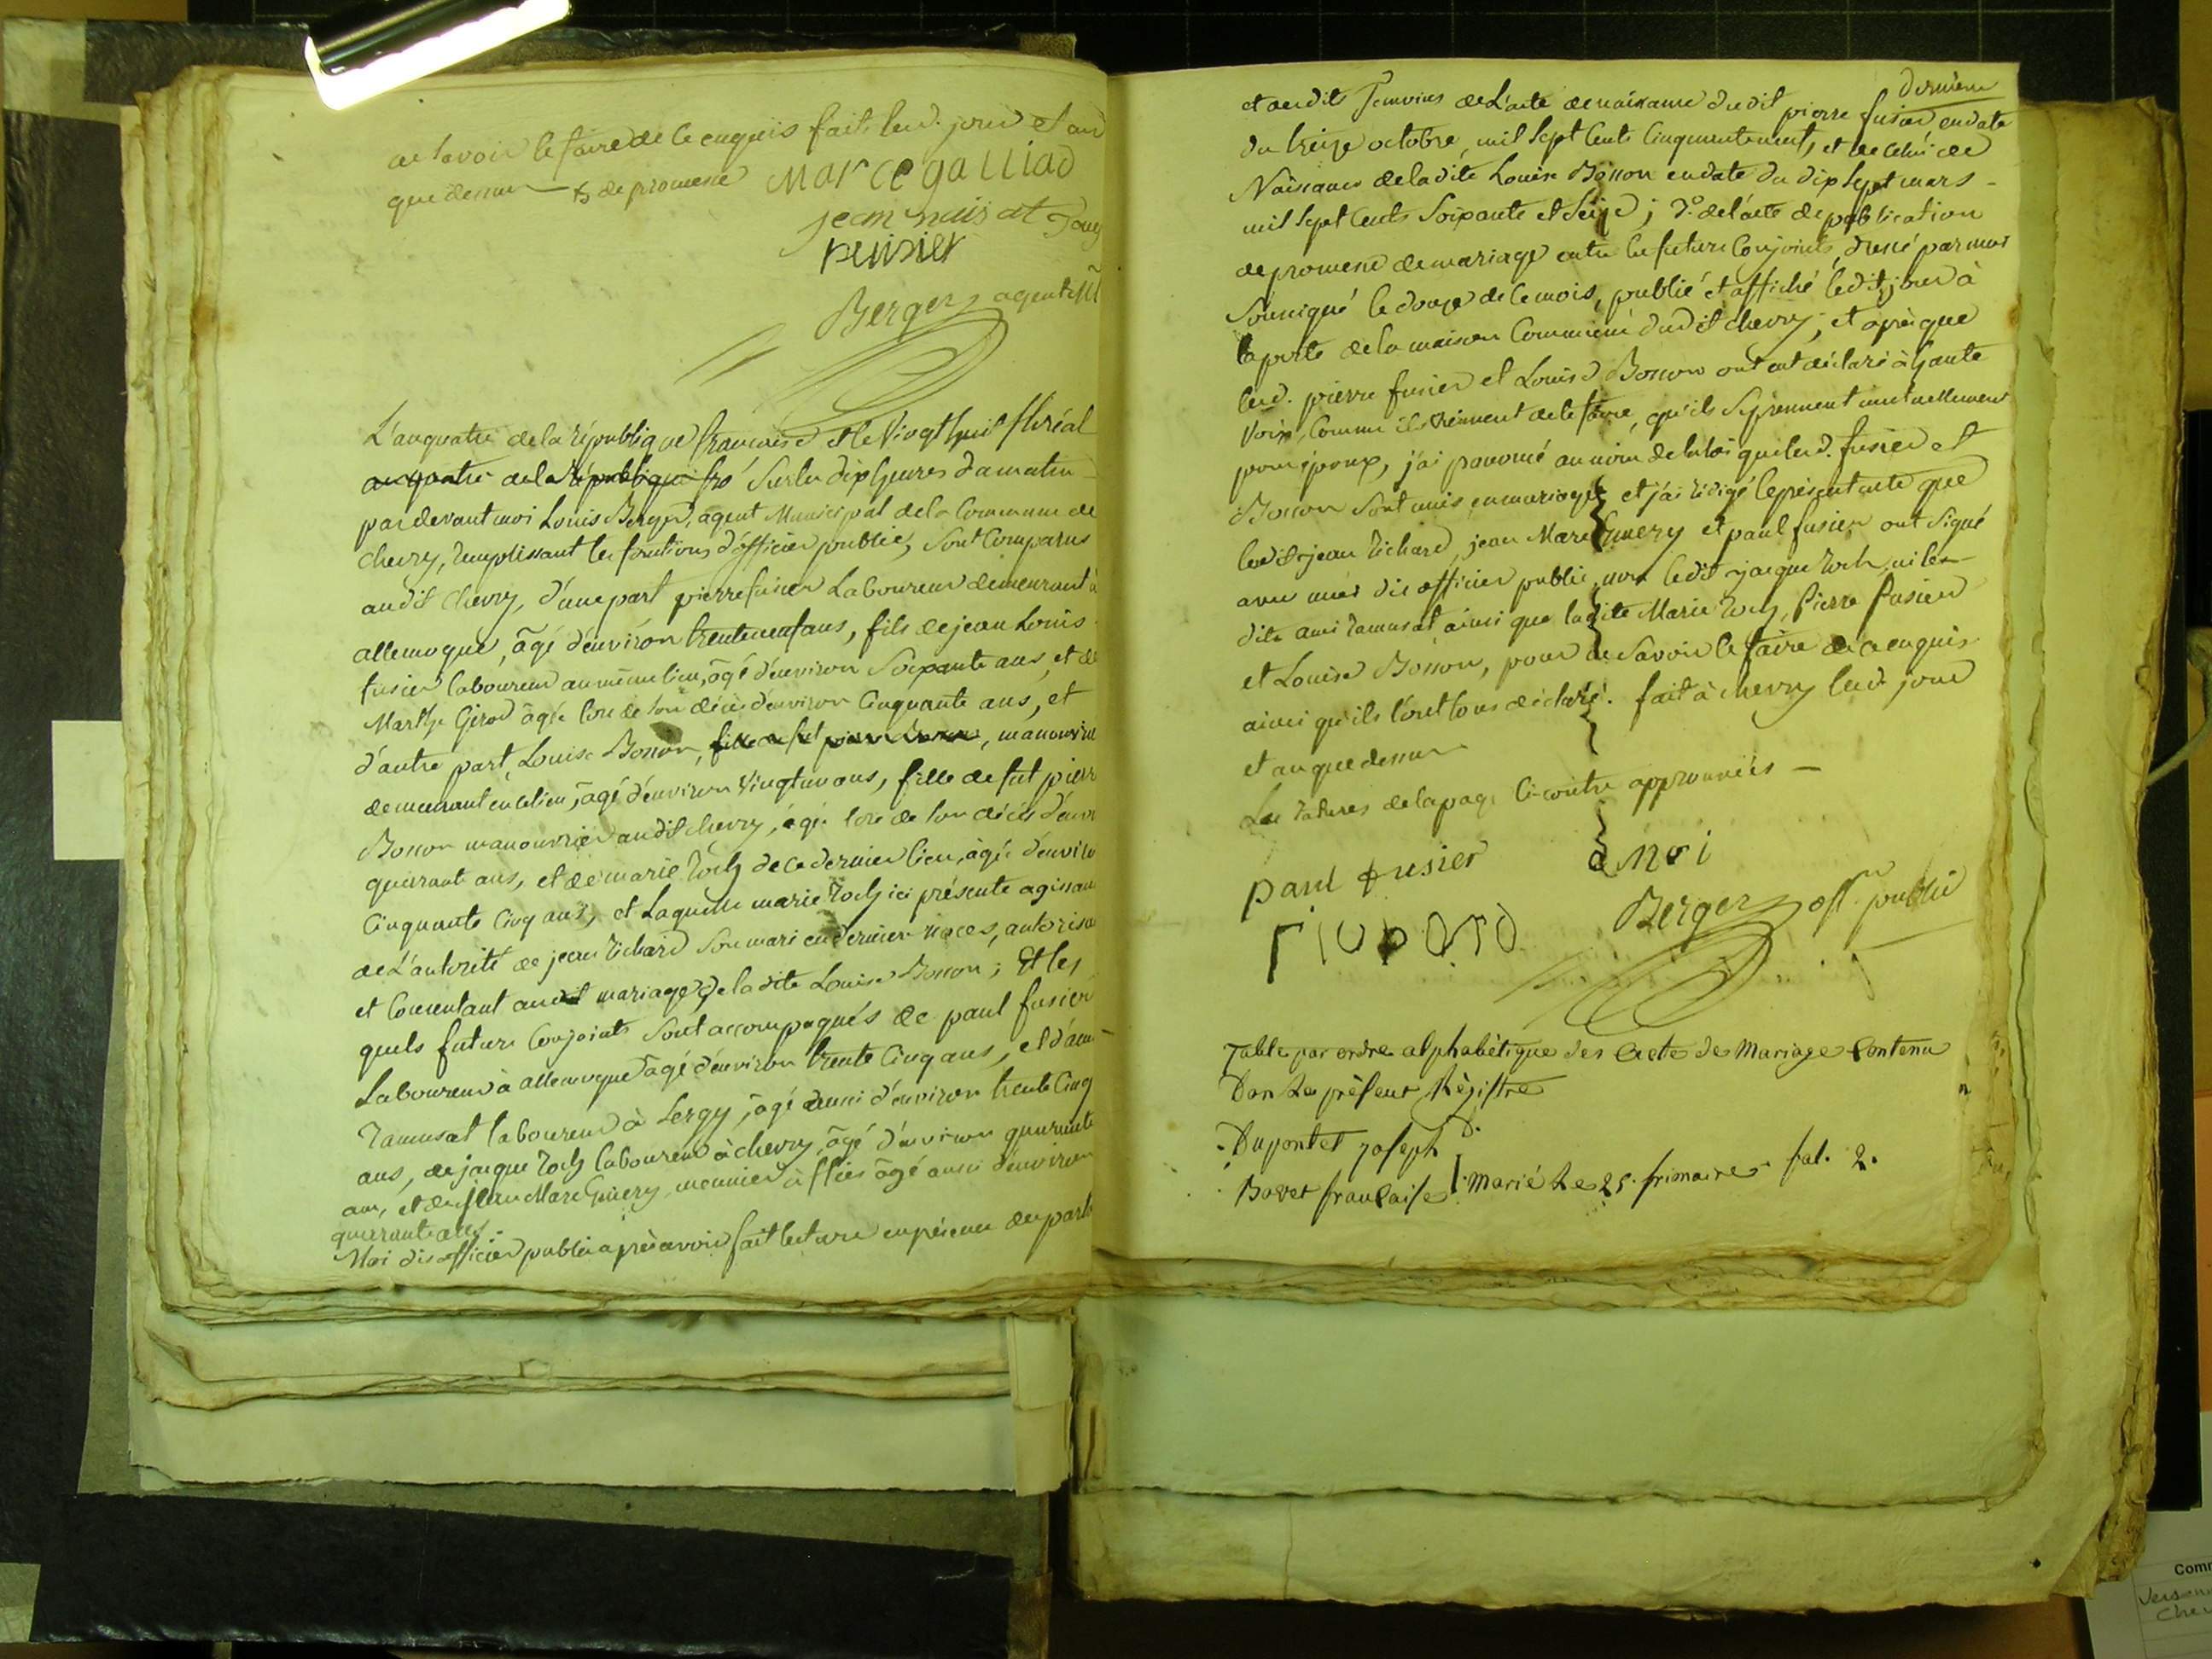 de savoir le faire de ce enquis fait led. jour et an
que dessus de promesse marce galliad
jean
perisier
Berger agent M
L'an quatre de la république francoise et le Vingt huit floréal
an quatre de la république fr sur les dix heures du matin
par devant moi Louis Berger, agent Municipal de la Commune de
Chevry, remplissant les fonctions d'officier public, sont Comparus
audit Chevry, d'une part pierre fusier Laboureur demeurant à
allemogne, âgé d'environ trente neuf ans, fils de jean Louis
fusier laboureur au même lieu, âgé d'environ Soixante ans, et de
Marthe Girod âgée lors de son décès d'environ Cinquante ans, et
d'autre part, Louise Bosson, fille de fut pierre, manouvri
demeurant en ce lieu, âgé d'environ Vingt un ans, fille de fut pierr
Bosson manouvrier audit chevry, âgé lors de son décès d'envi
quarante ans, et de marie Roch de ce dernier lieu, âgée d'enviro
Cinquante Cinq ans, et Laquelle marie Roch ici présente agissan
de L'autorité de jean Richard son mari en dernier noces, autorisa
et Consentant audit mariage de la dite Louise Bosson ; Et les
quels futurs Conjoints sont accompagnés de paul fusier
Laboureur à allemogne âgé d'environ trente Cinq ans, et d'ami
Ramusat laboureur à Sergy, âgé aussi d'environ trente Cinq
ans, de jacque Roch laboureur à chevry, âgé d'environ quarante
ans, et de jean Marc Guery meunier à flies âgé aussi d'environ
quarante ans.
Moi dis officier public après avoir fait lecture en présence des parti
dernière
et desdits Temoins de L'acte de naissance dudit pierre fusier en date
du treize octobre, mil sept Cents Cinquante neuf, et de celui de
Naissance de la dite Louise Bosson en date du dix sept mars
mil sept Cents Soixante et Seize ; 3° de l'acte de publication
de promesse de mariage entre les futurs Conjoints, dressé par moi
Soussigné le douze de ce mois, publié et affiché ledit jour à
la porte de la maison Commune dudit chevry ; et après que
led. pierre fusier et Louise Bosson ont eut déclaré à haute
Voix, Comme ils viennent de le faire, qu'ils se prennent mutuellement
pour époux, j'ai prononcé au nom de la loi que led. fusier et
Bosson sont unis en mariage et j'ai rédigé le présent acte que
ledit jean Richard, jean Marc Guery et paul fusier ont signé
avec moi dis officier public, non ledit jacque Roch, ni le
dite ami Ramusat, ainsi que ladite Marie Roch, Pierre fusier
et Louise Bosson, pour ne Savoir le faire de ce enquis
ainsi qu'ils l'ont tous déclaré. fait à chevry led. jour
et an que dessus
Les ratures de la page ci contre approuvées
paul fusier
moi
richard
Berger off. public
Table par ordre alphabétique des acte de Mariage Contenu
Dan Le présent Régistre
D.
Dupontet Joseph
Bovet francaise Marié Le 25. frimaire fol. 2.
Comm
Verson
Chev